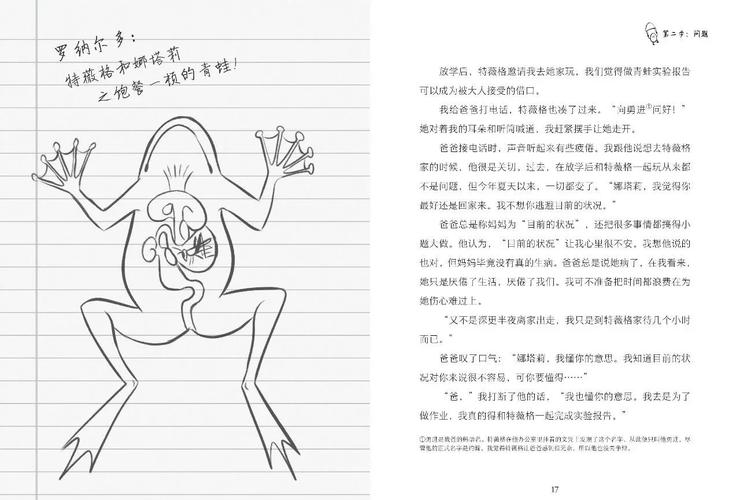 罗纳尔多：
特薇格和娜塔莉
之饱餐一顿的青蛙！
第二步：问题
放学后，特薇格邀请我去她家玩，我们觉得做青蛙实验报告
可以成为被大人接受的借口。
我给爸爸打电话，特薇格也凑了过来。“向勇进①问好！”
她对着我的耳朵和听筒喊道，我赶紧摆手让她走开。
爸爸接电话时，声音听起来有些疲倦。我跟他说想去特薇格
家的时候，他很是关切。过去，在放学后和特薇格一起玩从来都
不是问题，但今年夏天以来，一切都变了。“娜塔莉，我觉得你
最好还是回家来。我不想你逃避目前的状况。”
爸爸总是称妈妈为“目前的状况”，还把很多事情都搞得小
题大做。他认为，“目前的状况”让我心里很不安。我想他说的
也对，但妈妈毕竟没有真的生病。爸爸总是说她病了，在我看来，
她只是厌倦了生活，厌倦了我们。我可不准备把时间都浪费在为
她伤心难过上。
“又不是深更半夜离家出走，我只是到特薇格家待几个小时
而已。”
爸爸叹了口气：“娜塔莉，我懂你的意思。我知道目前的状
况对你来说很不容易，可你要懂得……”
“爸，”我打断了他的话，“我也懂你的意思。我去是为了
做作业，我真的得和特薇格一起完成实验报告。”
①勇进是我爸的韩语名，特薇格在他办公室里挂着的文凭上发现了这个名字，从此他只叫他勇进，尽
管他的正式名字是约翰，我觉得特薇格让爸爸感到很无奈，所以他也没去争辩。
17